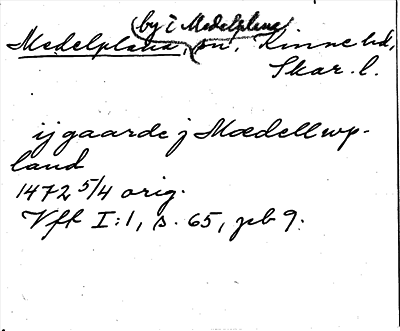 (by i Medelplana)
Medelplana, sn, Kinne hd,
Skar. l.
ij gaarde j Mædellwp-
land
1472 5/4 orig.
Vfk I:1, s. 65, pb 9.